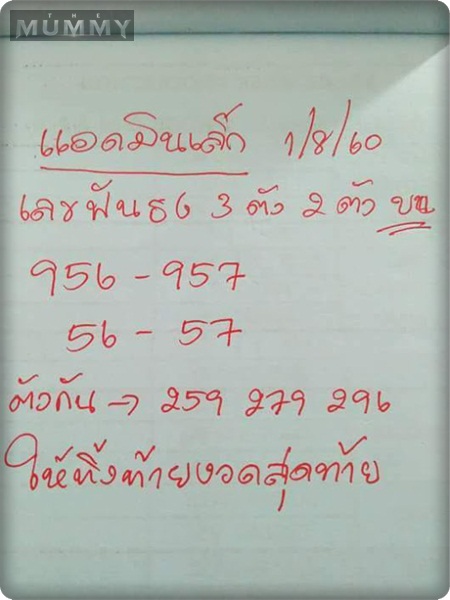 THE
MUMMY
แอดมินเล็ก 1/8/60
เลขฟันธง 3 ตัว 2 ตัว บน
956 - 957
56 - 57
ตัวกัน → 259 279 296
ให้ทิ้งท้ายงวดสุดท้าย